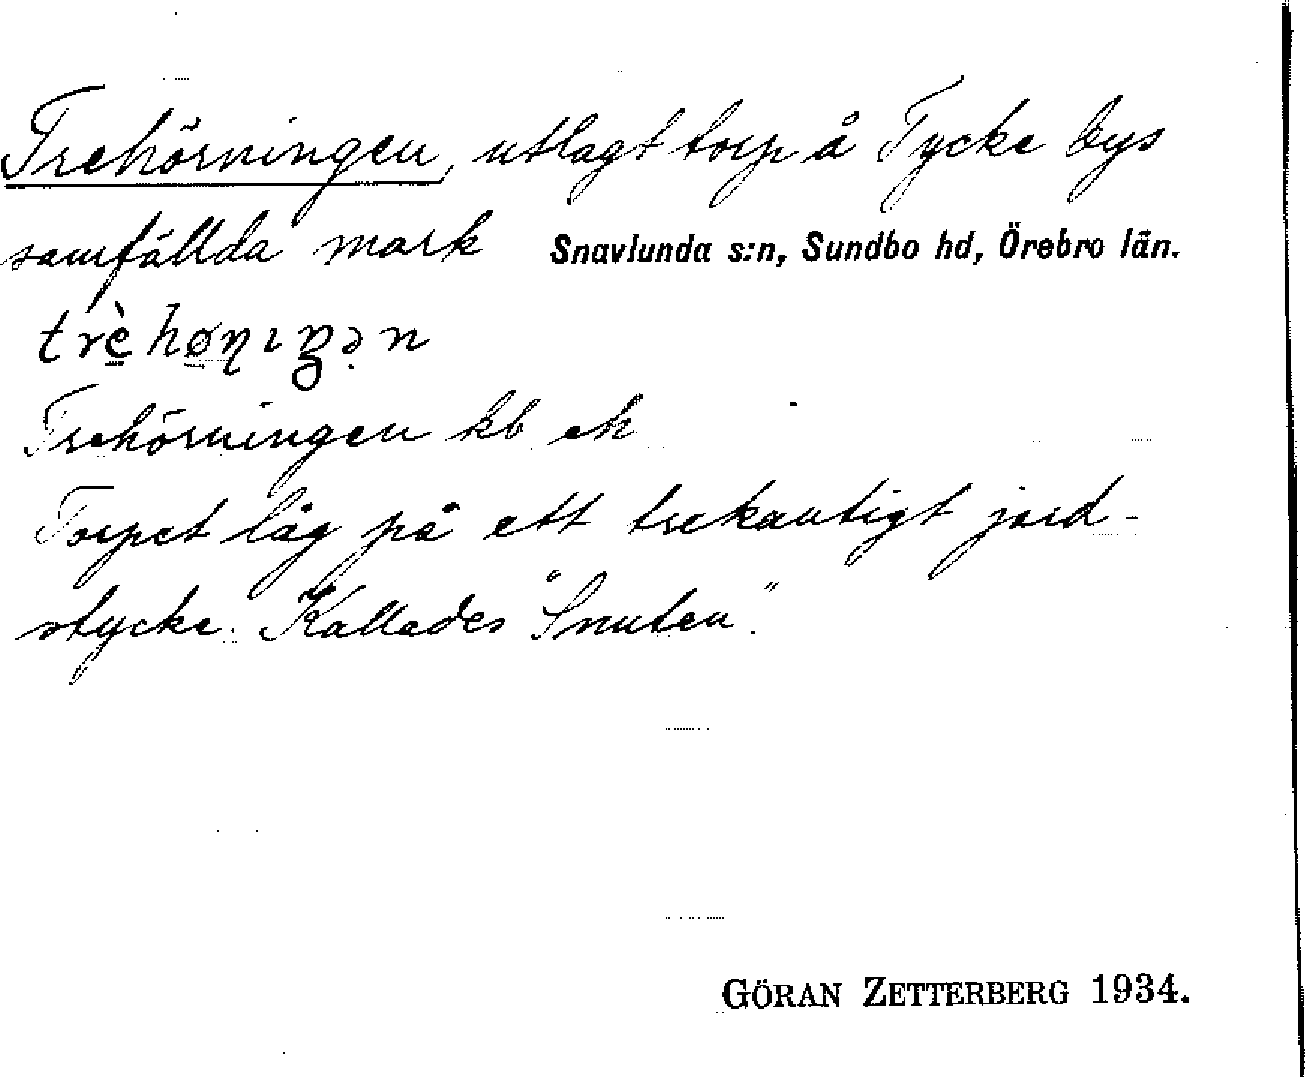 Trehörningen, utlagt torp å Tycke bys
samfällda mark Snavlunda s:n, Sundbo hd, Örebro län.
Trehörningen kb ek
Torpet låg på ett trekantigt jord-
stycke. Kallades "Snuten".
GÖRAN ZETTERBERG 1934.